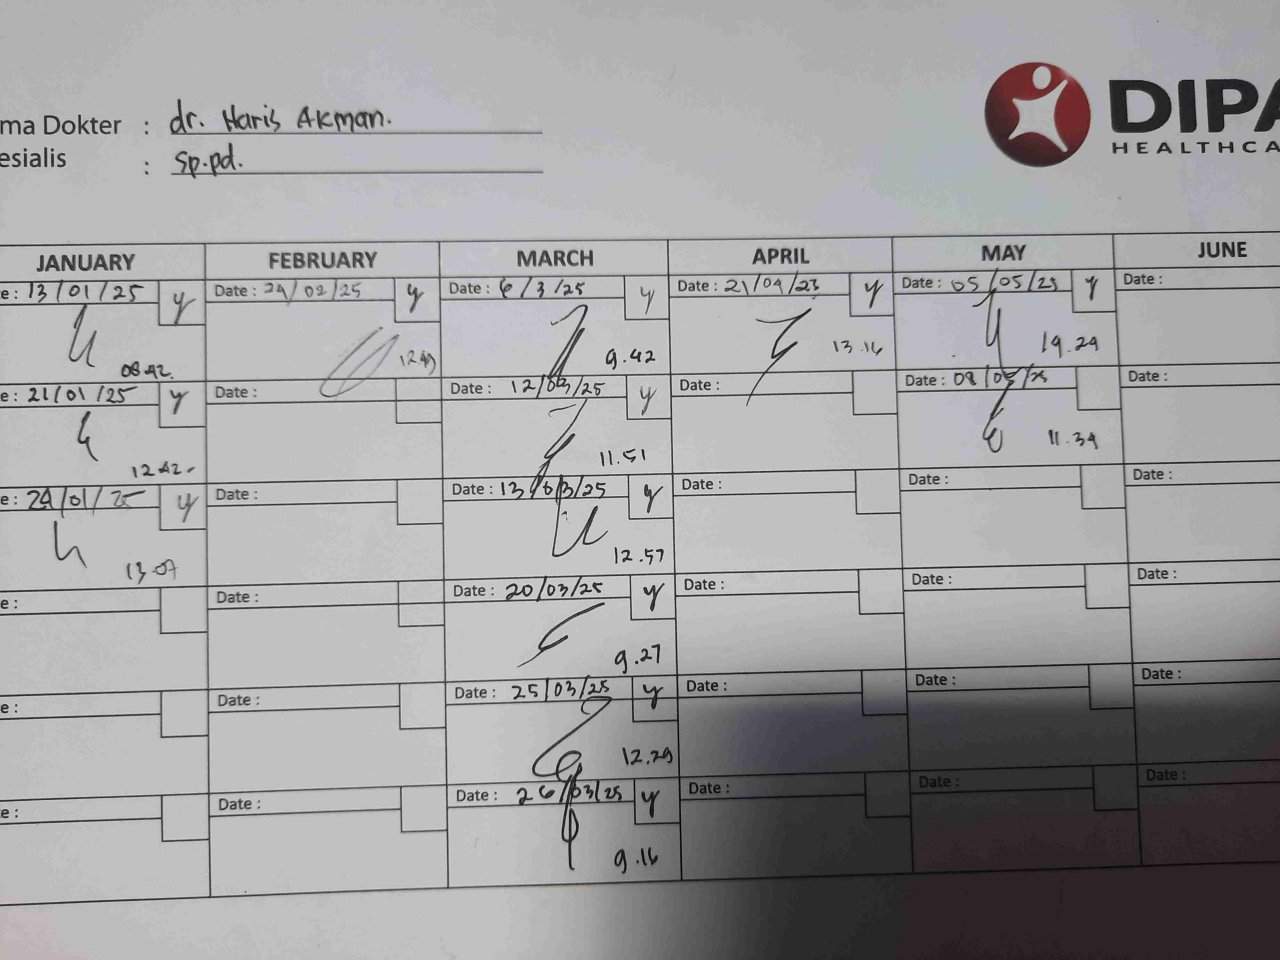 ma Dokter : dr. Haris Akman.
esialis : sp.pd.
DIPA
HEALTHCA
JANUARY FEBRUARY MARCH APRIL MAY JUNE
e : 13/01/25 y Date : 29/02/25 y Date : 6/3/25 y Date : 21/04/25 y Date : 05/05/25 y Date :
08.42. 12.49 9.42 13.16 19.29
e : 21/01/25 y Date : Date : 12/03/25 y Date : Date : 08/05/25 Date :
12.42. 11.51 11.39
e : 24/01/25 y Date : Date : 13/03/25 y Date : Date : Date :
13.07 12.57
e : Date : Date : 20/03/25 y Date : Date : Date :
9.27
e : Date : Date : 25/03/25 y Date : Date : Date :
12.29
e : Date : Date : 26/03/25 y Date : Date : Date :
9.16